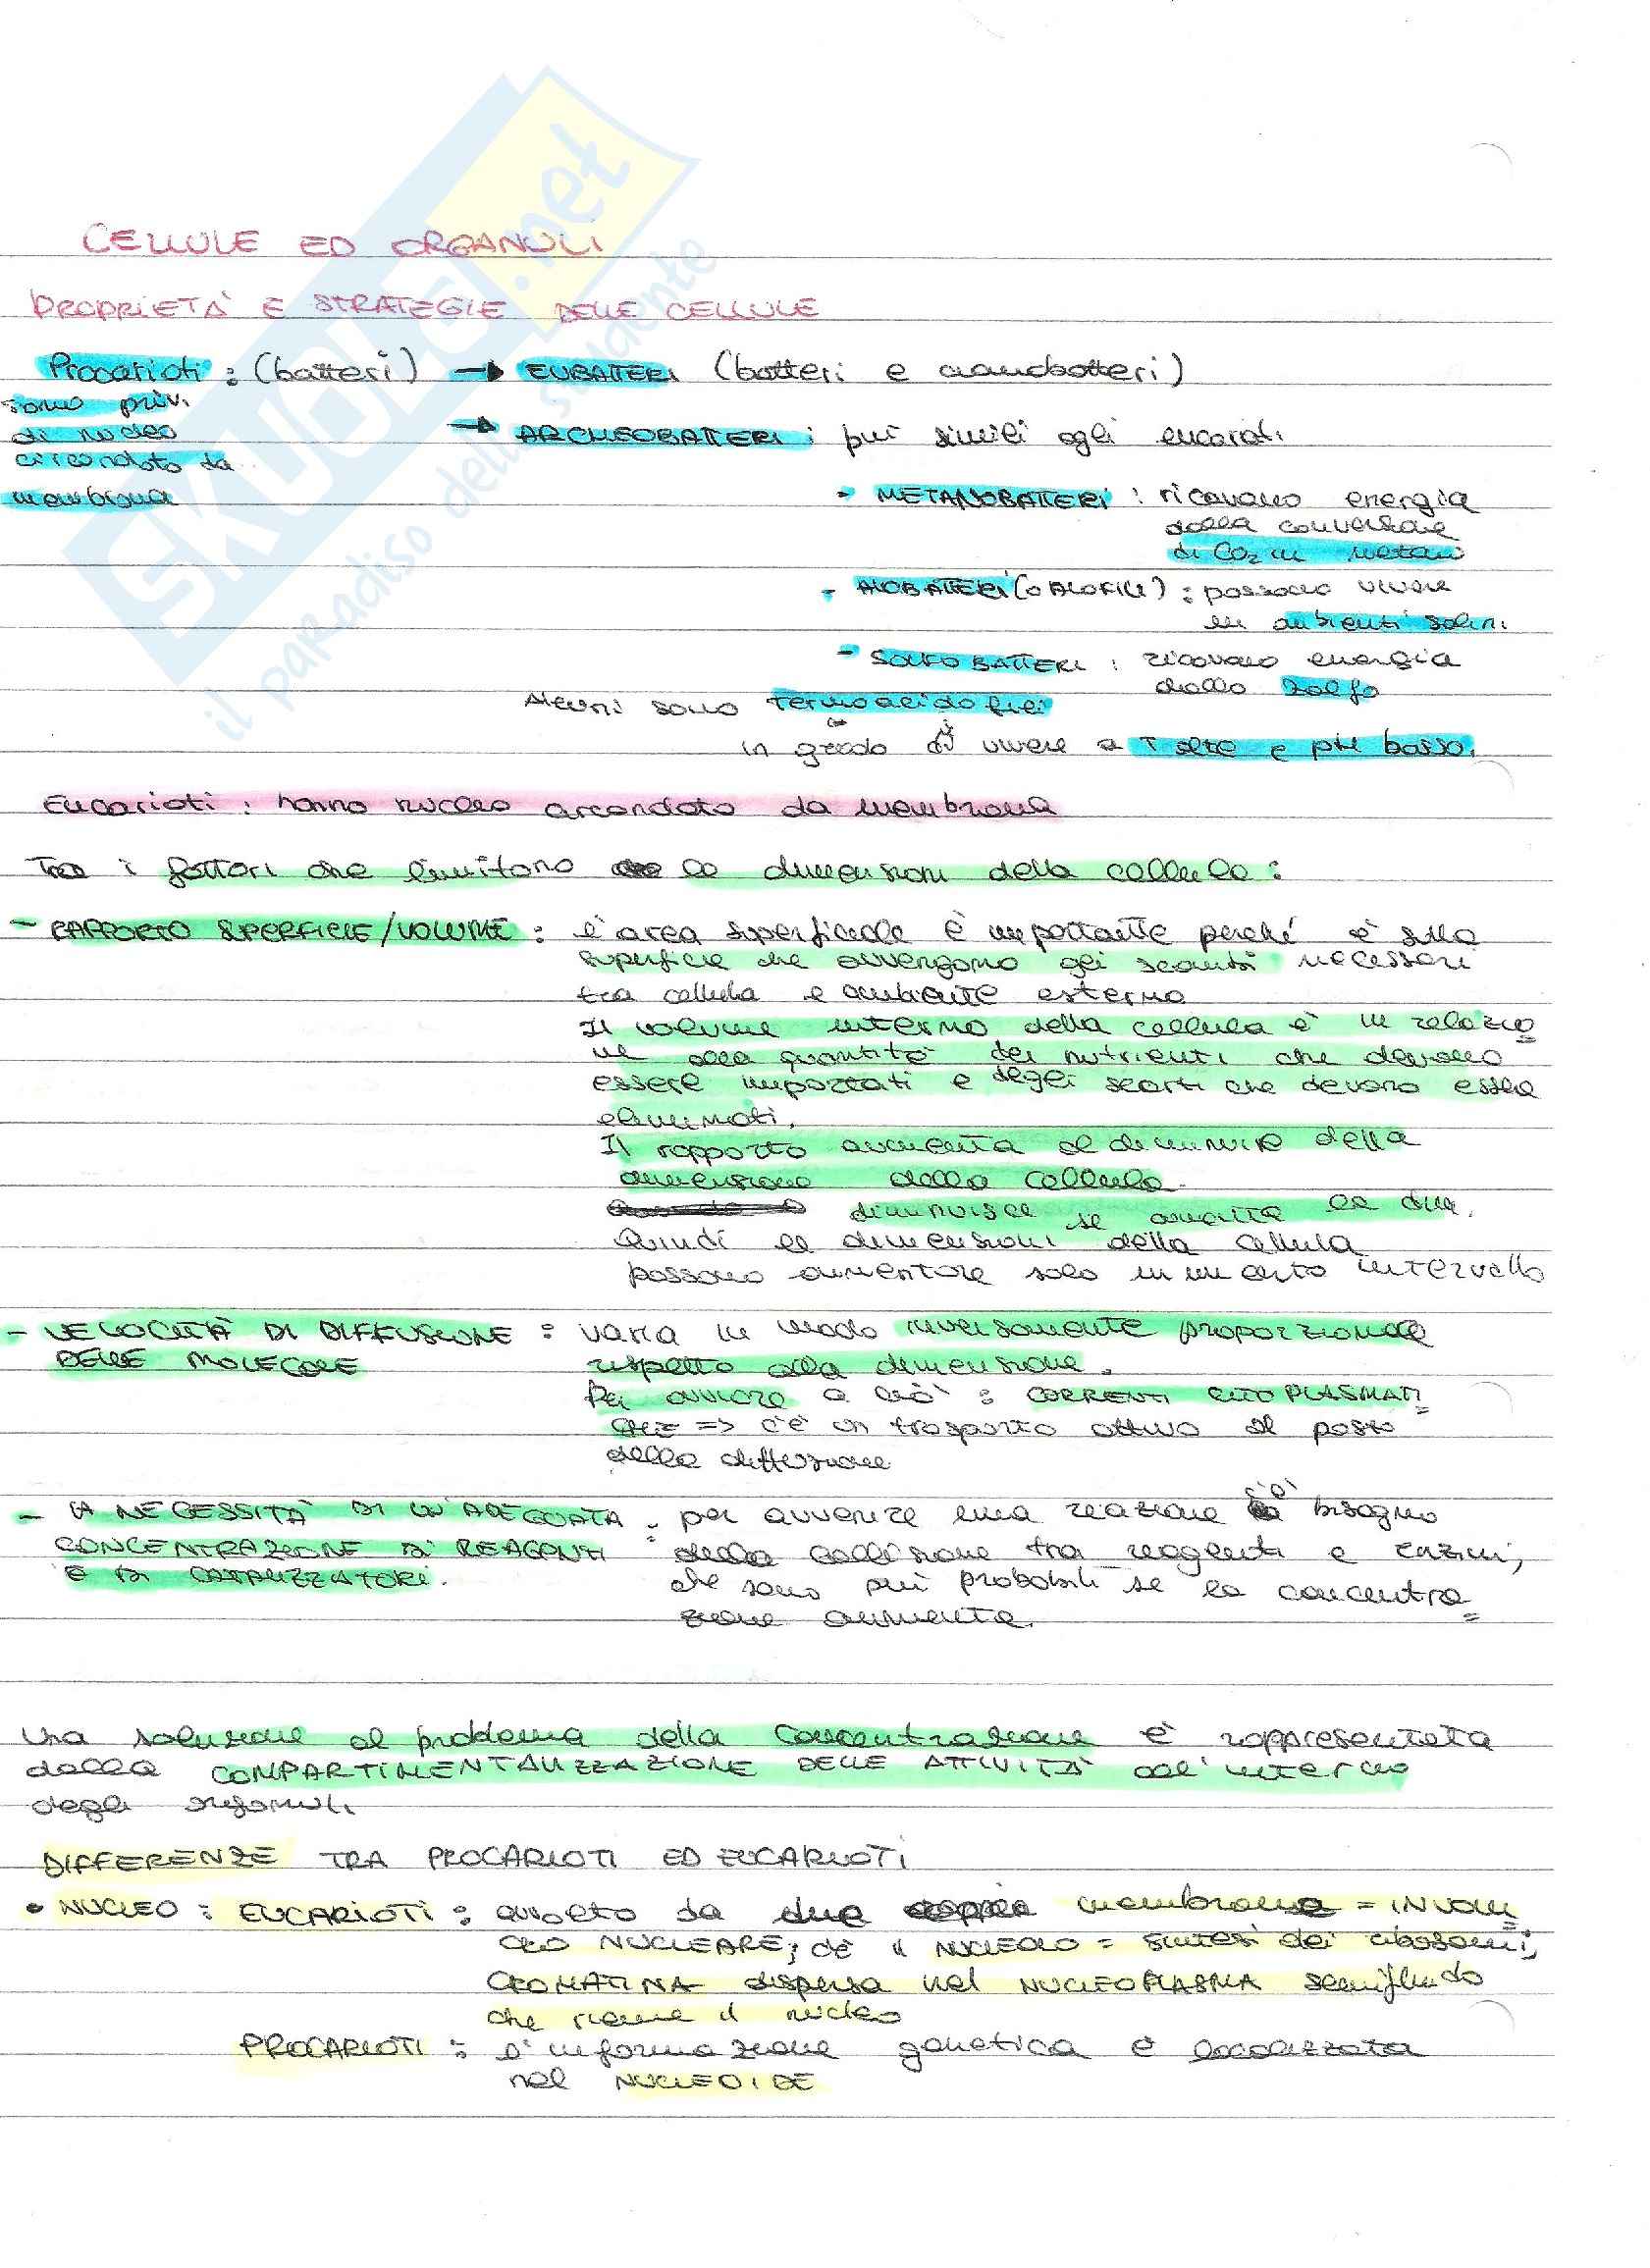 SKUOLA.net
il paradiso dello studente
CELLULE ED ORGANULI
PROPRIETÀ E STRATEGIE DELLE CELLULE
Procarioti : (batteri) → EUBATTERI (batteri e cianobatteri)
sono privi
di nucleo
circondato da
membrana
→ ARCHEOBATTERI : più simili agli eucarioti
- METANOBATTERI : ricavano energia
dalla conversione
di CO2 in metano
- ALOBATTERI (o ALOFILI) : possono vivere
in ambienti salini
- SOLFOBATTERI : ricavano energia
dallo zolfo
Alcuni sono termoacidofili
in grado di vivere a T alte e pH basso.
Eucarioti : hanno nucleo circondato da membrana
Tra i fattori che limitano le dimensioni della cellula :
- RAPPORTO SUPERFICIE/VOLUME : l'area superficiale è importante perché è sulla
superficie che avvengono gli scambi necessari
tra cellula e ambiente esterno
Il volume interno della cellula è in relazio
ne alla quantità dei nutrienti che devono
essere importati e degli scarti che devono essere
eliminati.
Il rapporto aumenta al diminuire della
dimensione della cellula.
diminuisce se aumenta la dim.
Quindi le dimensioni della cellula
possono aumentare solo in un certo intervallo
- VELOCITÀ DI DIFFUSIONE : varia in modo inversamente proporzionale
DELLE MOLECOLE
rispetto alla dimensione.
Per ovviare a ciò : CORRENTI CITOPLASMATI
CHE => c'è un trasporto attivo al posto
della diffusione
- LA NECESSITÀ DI UN'ADEGUATA : per avvenire una reazione c'è bisogno
CONCENTRAZIONE DI REAGENTI
della collisione tra reagenti e enzimi,
E DI CATALIZZATORI.
che sono più probabili se la concentra
zione aumenta.
Una soluzione al problema della concentrazione è rappresentata
dalla COMPARTIMENTALIZZAZIONE DELLE ATTIVITÀ all'interno
degli organuli
DIFFERENZE TRA PROCARIOTI ED EUCARIOTI
• NUCLEO : EUCARIOTI : avvolto da due membrane = INVOLU
CRO NUCLEARE; c'è il NUCLEOLO = sintesi dei ribosomi;
CROMATINA dispersa nel NUCLEOPLASMA semifluido
che riempie il nucleo
PROCARIOTI : l'informazione genetica è localizzata
nel NUCLEOIDE